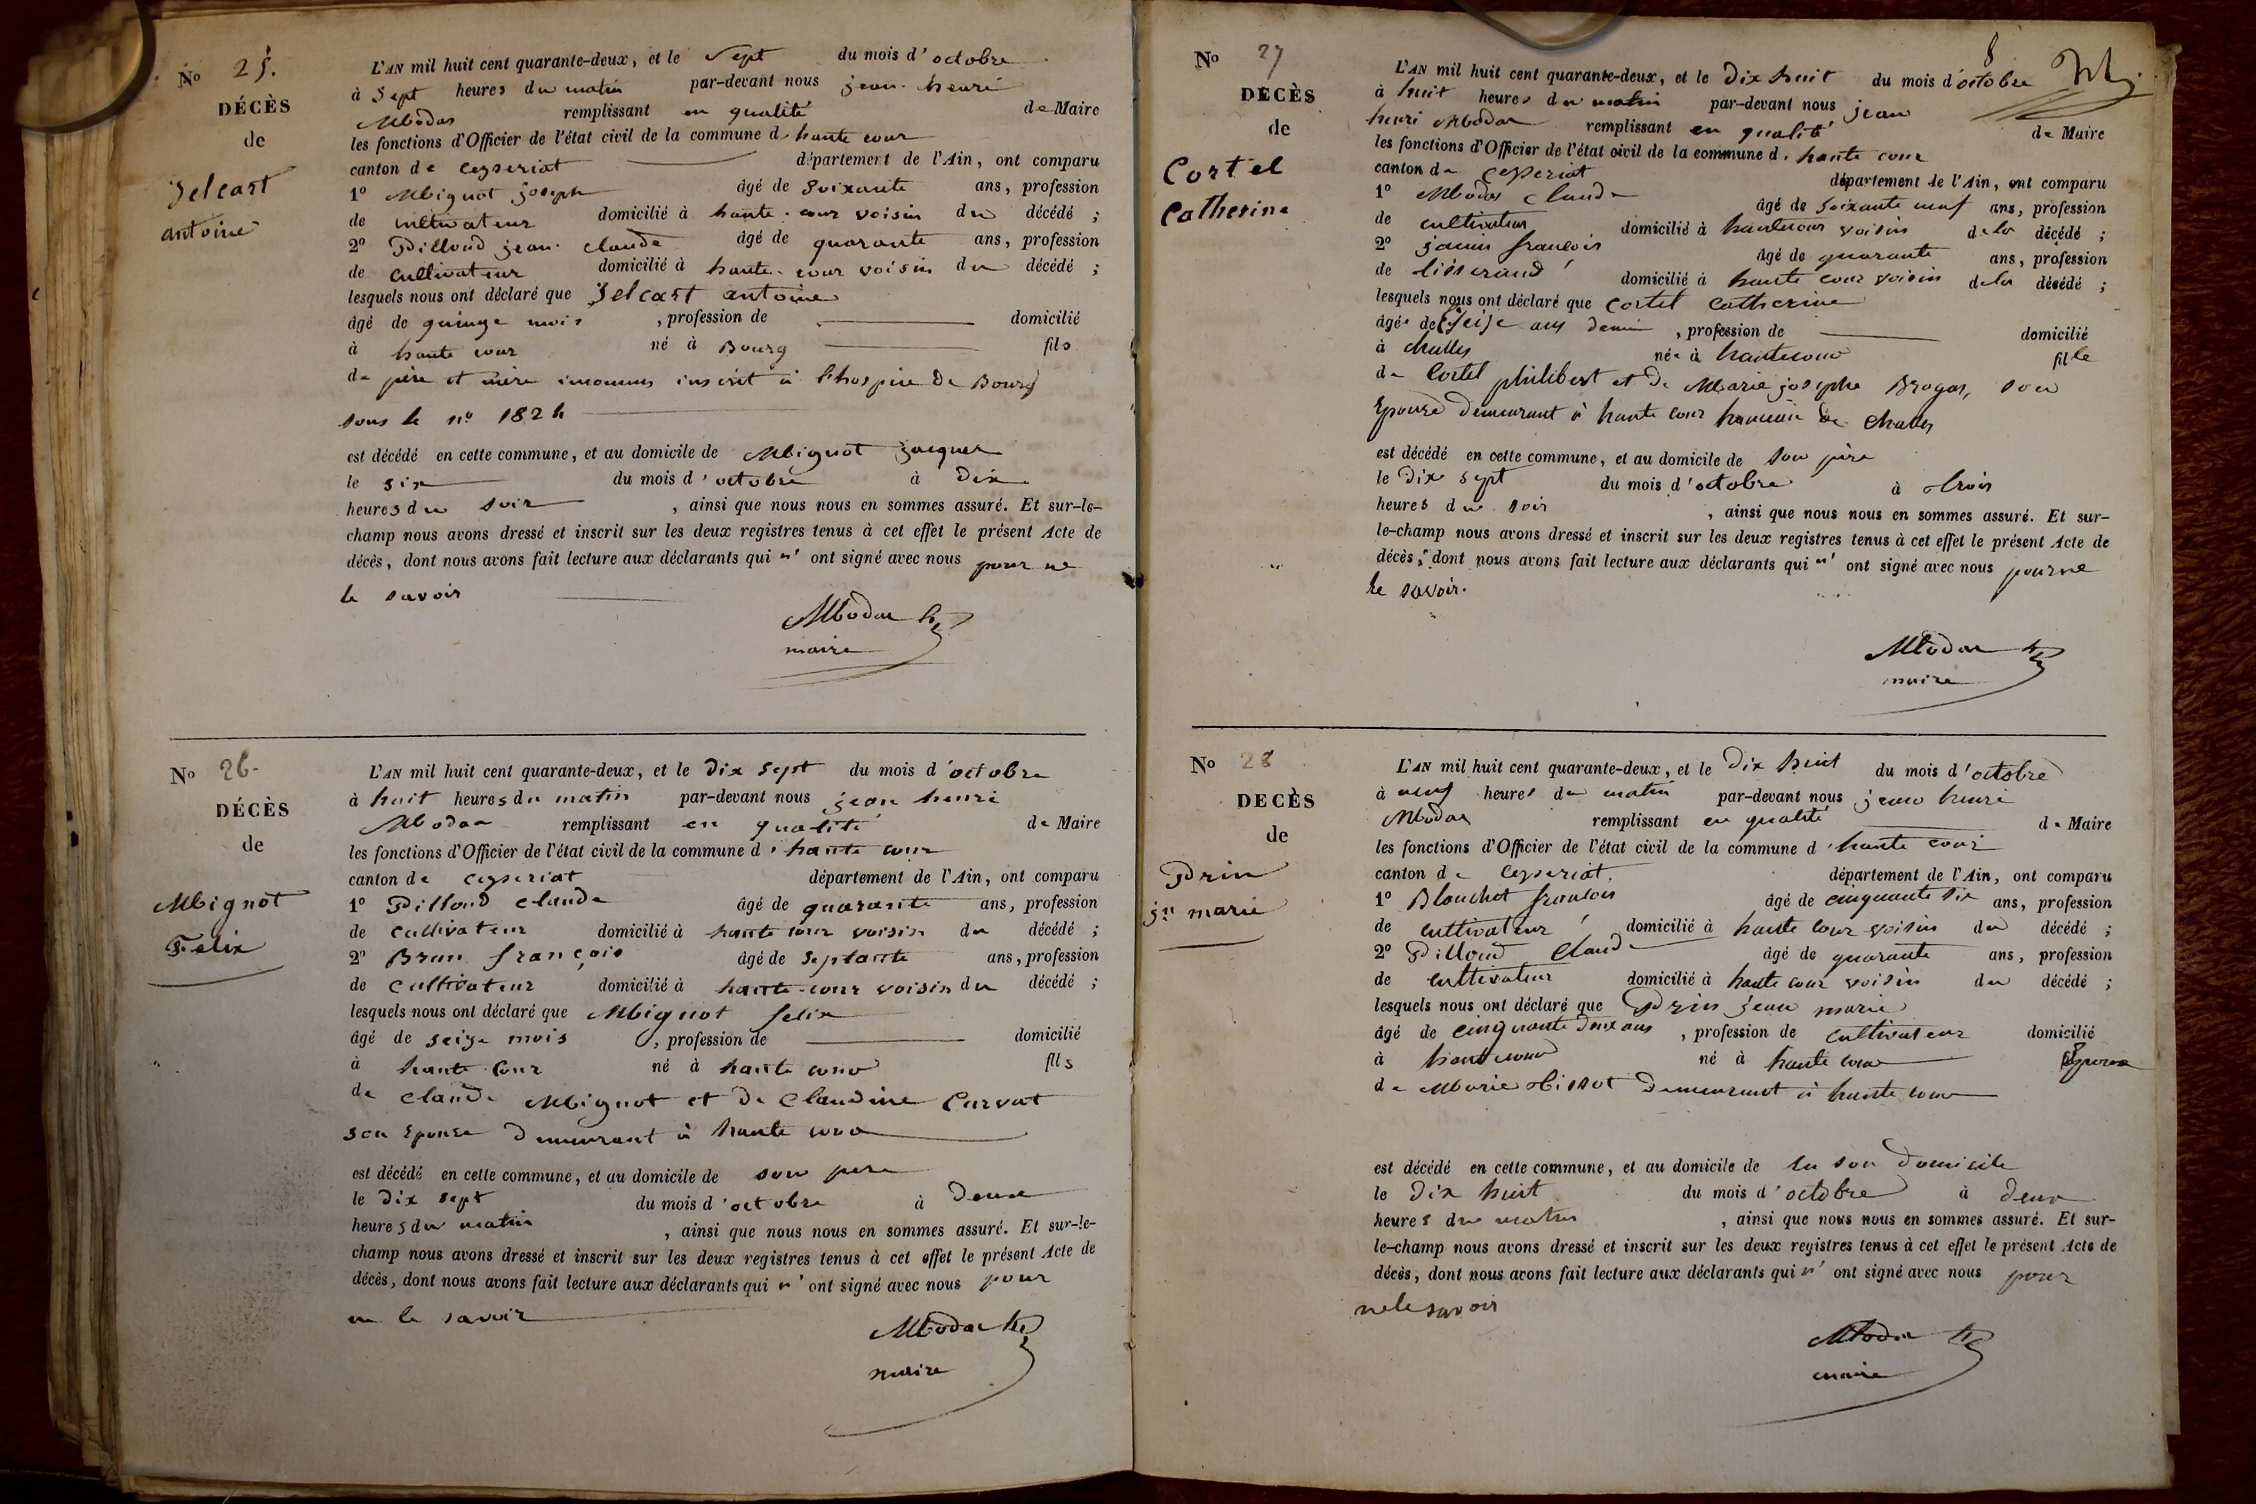 N° 25.
DÉCÈS
de
Jelcart
antoine
L'AN mil huit cent quarante-deux, et le Sept du mois d'octobre
à Sept heures du matin par-devant nous jean henri
Modas remplissant en qualité de Maire
les fonctions d'Officier de l'état civil de la commune d. haute cour
canton de ceyseriat département de l'Ain, ont comparu
1° Mignot joseph âgé de Soixante ans, profession
de cultivateur domicilié à haute-cour voisin du décédé ;
2° Pilloud jean claude âgé de quarante ans, profession
de cultivateur domicilié à haute-cour voisin du décédé ;
lesquels nous ont déclaré que Jelcart antoine
âgé de quinze mois , profession de domicilié
à haute cour né à Bourg fils
de père et mère inconnus inscrit à l'hospice de Bourg
sous le n° 182
est décédé en cette commune, et au domicile de Mignot jacques
le six du mois d'octobre à dix
heures du soir , ainsi que nous nous en sommes assuré. Et sur-le-
champ nous avons dressé et inscrit sur les deux registres tenus à cet effet le présent Acte de
décès, dont nous avons fait lecture aux déclarants qui n' ont signé avec nous pour ne
le savoir
Modas
maire
N° 26-
DÉCÈS
de
Mignot
Felix
L'AN mil huit cent quarante-deux, et le dix sept du mois d'octobre
à huit heures du matin par-devant nous jean henri
Modas remplissant en qualité de Maire
les fonctions d'Officier de l'état civil de la commune d. haute cour
canton de ceyseriat département de l'Ain, ont comparu
1° Pilloud claude âgé de quarante ans, profession
de cultivateur domicilié à haute cour voisin du décédé ;
2° Brun françois âgé de Septante ans, profession
de cultivateur domicilié à haute-cour voisin du décédé ;
lesquels nous ont déclaré que Mignot felix
âgé de seize mois , profession de domicilié
à haute cour né à haute cour fils
de claude Mignot et de claudine Curvat
son Epouse demeurant à haute cour
est décédé en cette commune, et au domicile de son pere
le dix sept du mois d'octobre à deux
heures du matin , ainsi que nous nous en sommes assuré. Et sur-le-
champ nous avons dressé et inscrit sur les deux registres tenus à cet effet le présent Acte de
décès, dont nous avons fait lecture aux déclarants qui n' ont signé avec nous pour
ne le savoir
Modas
maire
8
N° 27
DÉCÈS
de
Cortel
Catherine
L'AN mil huit cent quarante-deux, et le dix huit du mois d'octobre
à huit heures du matin par-devant nous jean
henri Modas remplissant en qualité de Maire
les fonctions d'Officier de l'état civil de la commune d. haute cour
canton de ceyseriat département de l'Ain, ont comparu
1° Modas claude âgé de soixante neuf ans, profession
de cultivateur domicilié à hautecour voisin de la décédé ;
2° françois âgé de quarante ans, profession
de tisserand domicilié à haute cour voisin de la décédé ;
lesquels nous ont déclaré que cortel catherine
âgée de seize ans demi , profession de domicilié
à challes née à hautecour fille
de Cortel philibert et de Marie josephe Brogas, son
Epouse demeurant à haute cour hameau de challes
est décédé en cette commune, et au domicile de son père
le dix sept du mois d'octobre à trois
heures du soir , ainsi que nous nous en sommes assuré. Et sur-
le-champ nous avons dressé et inscrit sur les deux registres tenus à cet effet le présent Acte de
décès, dont nous avons fait lecture aux déclarants qui n' ont signé avec nous pour ne
le savoir.
Modas
maire
N° 28
DECÈS
de
Prin
jn marie
L'AN mil huit cent quarante-deux, et le dix huit du mois d'octobre
à neuf heures du matin par-devant nous jean henri
Modas remplissant en qualité de Maire
les fonctions d'Officier de l'état civil de la commune d. haute cour
canton de ceyseriat. département de l'Ain, ont comparu
1° Blanchet françois âgé de cinquante six ans, profession
de cultivateur domicilié à haute cour voisin du décédé ;
2° Pilloud claude âgé de quarante ans, profession
de cultivateur domicilié à haute cour voisin du décédé ;
lesquels nous ont déclaré que Prin jean marie
âgé de cinquante deux ans , profession de cultivateur domicilié
à haute cour né à haute cour Epoux
de Marie Tissot demeurant à haute cour
est décédé en cette commune, et au domicile de en son domicile
le dix huit du mois d'octobre à deux
heures du matin , ainsi que nous nous en sommes assuré. Et sur-
le-champ nous avons dressé et inscrit sur les deux registres tenus à cet effet le présent Acte de
décès, dont nous avons fait lecture aux déclarants qui n' ont signé avec nous pour
ne le savoir
Modas
maire